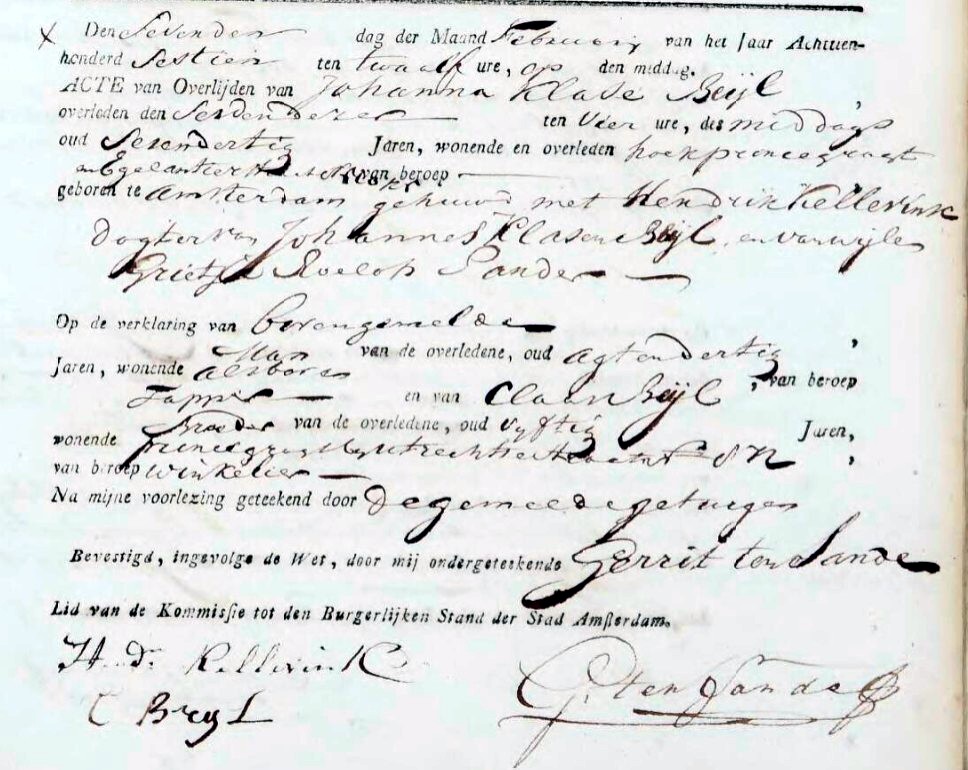 x Den Sevenden dag der Maand February van het Jaar Achttien-
honderd Sestien ten twaalf ure, op den middag.
ACTE van Overlijden van Johanna Klase Beijl,
overleden den Sevendezer ten vier ure, des middags
oud Sevendertig Jaren, wonende en overleden hoek princegragt
en Egelantier van beroep
geboren te Amsterdam gehuwd met Hendrik Kellerink
Dogter van Johannes Klasen Beijl en van wijle
Grietje Roelof Sander
Op de verklaring van bovengemelde
Man van de overledene, oud agtendertig,
Jaren, wonende als boven, van beroep
Tapper en van Claas Beijl
Broeder van de overledene, oud vyftig Jaren,
wonende princegragt by utrechtsestraat N,
van beroep winkelier
Na mijne voorlezing geteekend door de gemelde getuigen
Bevestigd, ingevolge de Wet, door mij ondergeteekende Gerrit ten Sande
Lid van de Kommissie tot den Burgerlijken Stand der Stad Amsterdam.
Hendk Kellerink
C Beyl G: ten Sande